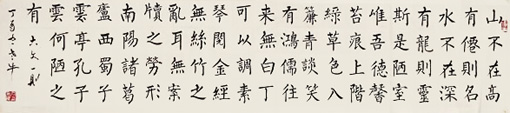 山不在高
有僊則名
水不在深
有龍則靈
斯是陋室
惟吾德馨
苔痕上階
綠草色入
簾青談笑
有鴻儒往
來無白丁
可以調素
琴閱金經
無絲竹之
亂耳無案
牘之勞形
南陽諸葛
廬西蜀子
雲亭孔子
雲何陋之
有